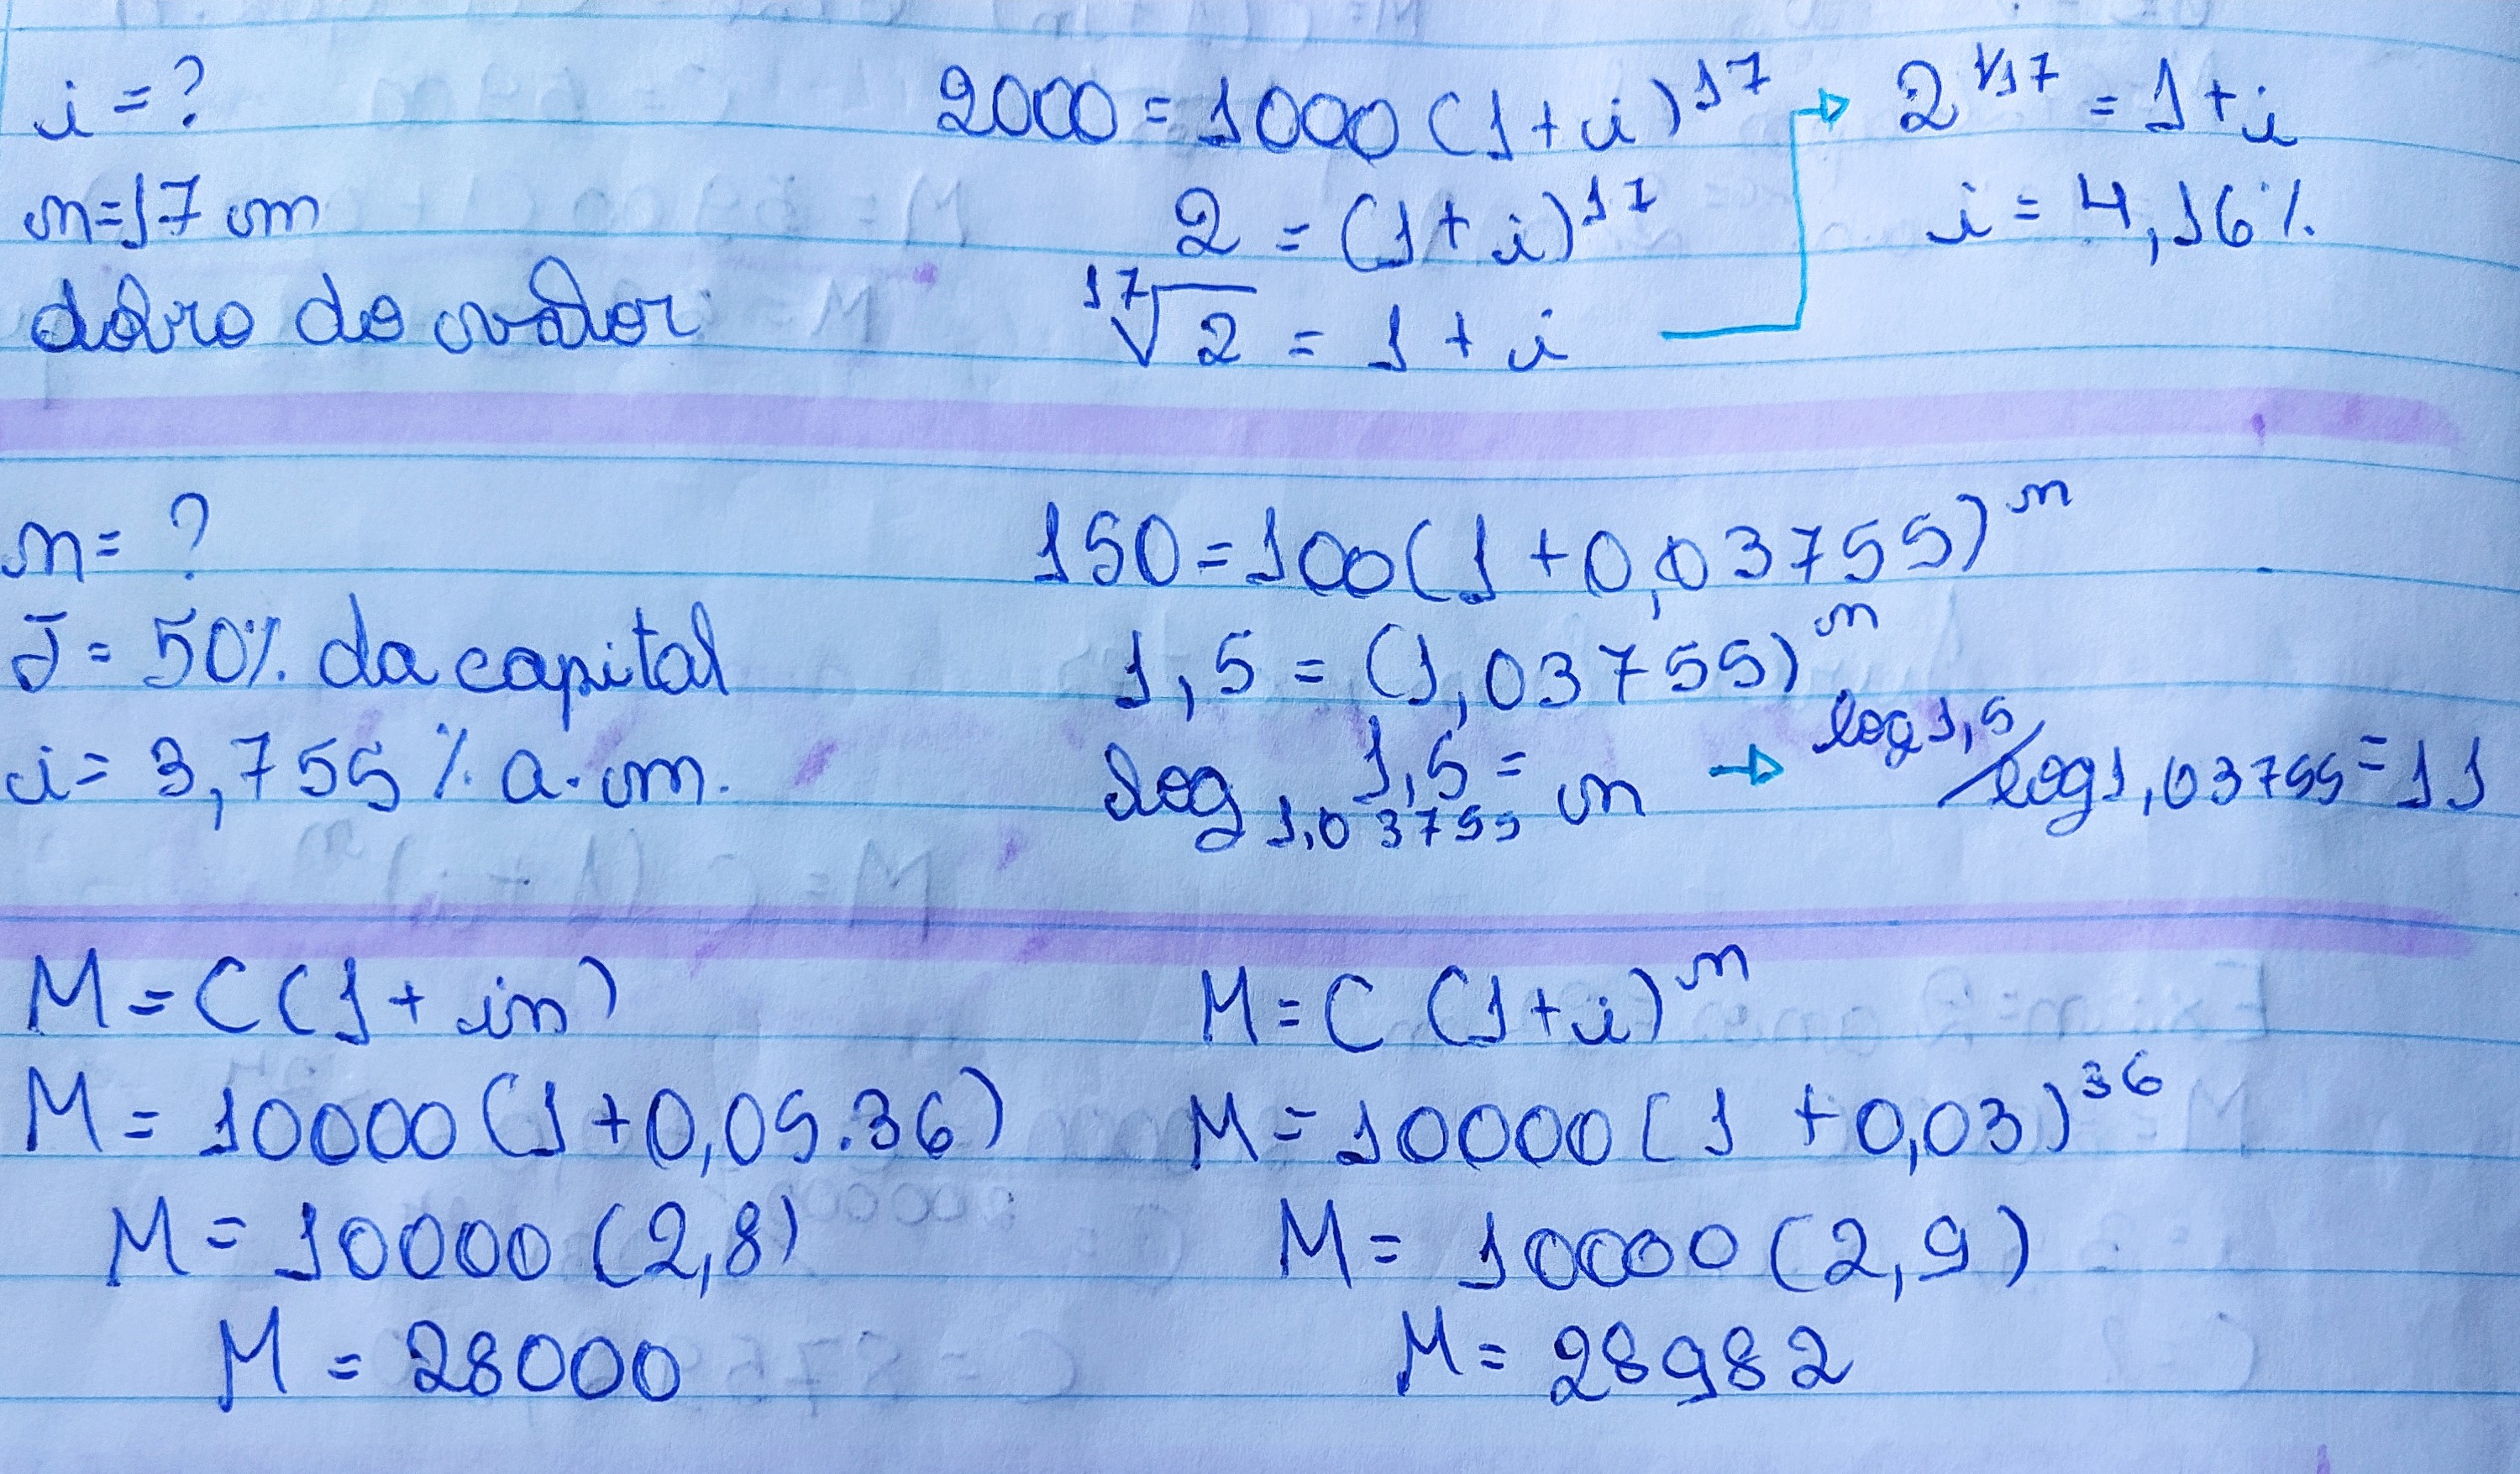 i = ?
n=17 m
dobro do valor
2000 = 1000 (1+i)^17
2 = (1+i)^17
17√2 = 1 + i
2^1/17 = 1+i
i = 4,16%
n= ?
J = 50% da capital
i= 3,755 % a.m.
150=100(1+0,03755)^n
1,5 = (1,03755)^n
log 1,03755 1,5 = n → log1,5/log1,03755=11
M=C(1+in)
M= 10000(1+0,05.36)
M= 10000 (2,8)
M = 28000
M=C (1+i)^n
M= 10000(1 +0,03)^36
M= 10000(2,9)
M= 28982